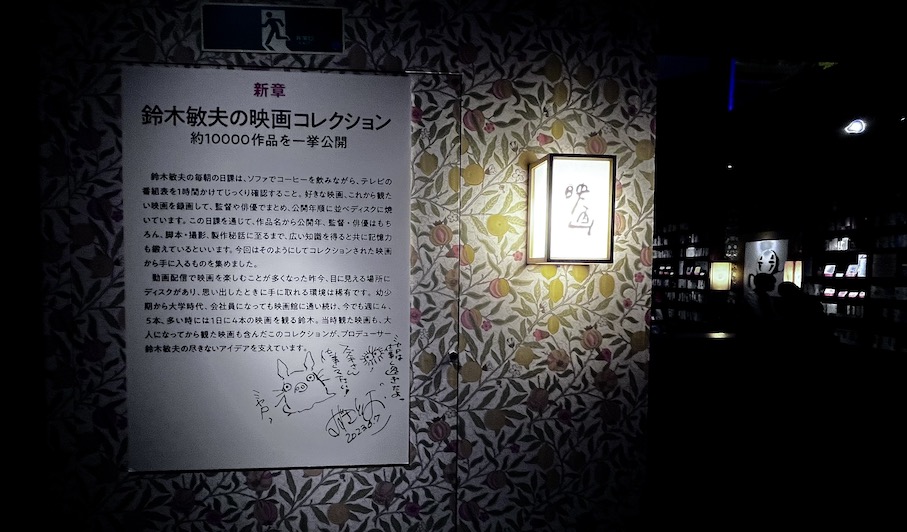 新章
鈴木敏夫の映画コレクション
約10000作品を一挙公開
鈴木敏夫の毎朝の日課は、ソファでコーヒーを飲みながら、テレビの
番組表を1時間かけてじっくり確認すること。好きな映画、これから観た
い映画を録画して、監督や俳優でまとめ、公開年順に並べディスクに焼
いています。この日課を通じて、作品名から公開年、監督・俳優はもち
ろん、脚本・撮影、製作秘話に至るまで、広い知識を得ると共に記憶力
も鍛えているといいます。今回はそのようにしてコレクションされた映画
から手に入るものを集めました。
動画配信で映画を楽しむことが多くなった昨今、目に見える場所に
ディスクがあり、思い出したときに手に取れる環境は稀有です。幼少
期から大学時代、会社員になっても映画館に通い続け、今でも週に4、
5本、多い時には1日に4本の映画を観る鈴木。当時観た映画も、大
人になってから観た映画も含んだこのコレクションが、プロデューサー
鈴木敏夫の尽きないアイデアを支えています。
2023.6.7
映画